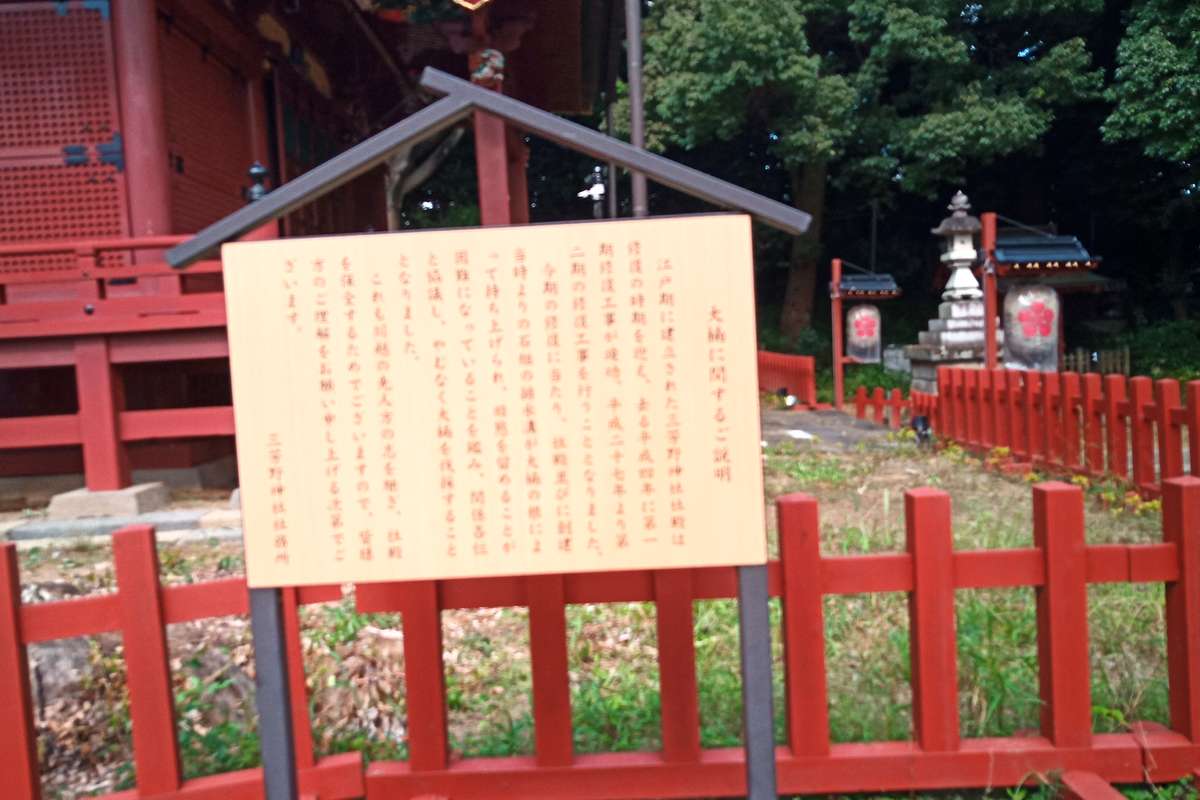 大楠に関するご説明
江戸期に建立された三芳野神社社殿は
修復の時期を迎え、去る平成四年に第一
期修復工事が竣功、平成二十七年より第
二期の修復工事を行うこととなりました。
今期の修復に当たり、社殿並びに創建
当時よりの石組の排水溝が大楠の根によ
って持ち上げられ、旧態を留めることが
困難になっていることを鑑み、関係各位
と協議し、やむなく大楠を伐採すること
となりました。
これも旧格の先人方の志を継ぎ、社殿
を保全するためでございますので、皆様
方のご理解をお願い申し上げる次第でご
ざいます。
三芳野神社社務所